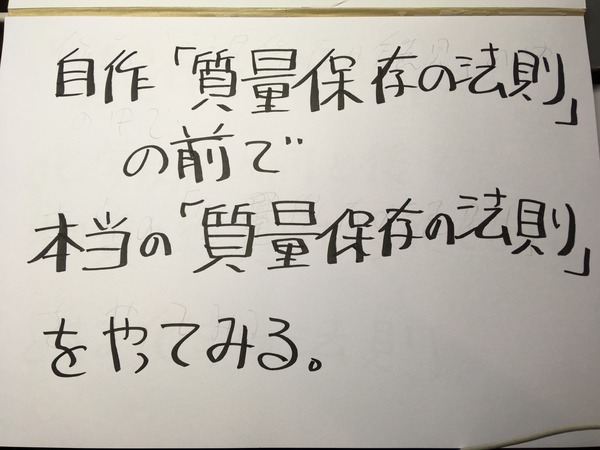 自作「質量保存の法則」
の前で
本当の「質量保存の法則」
をやってみる。